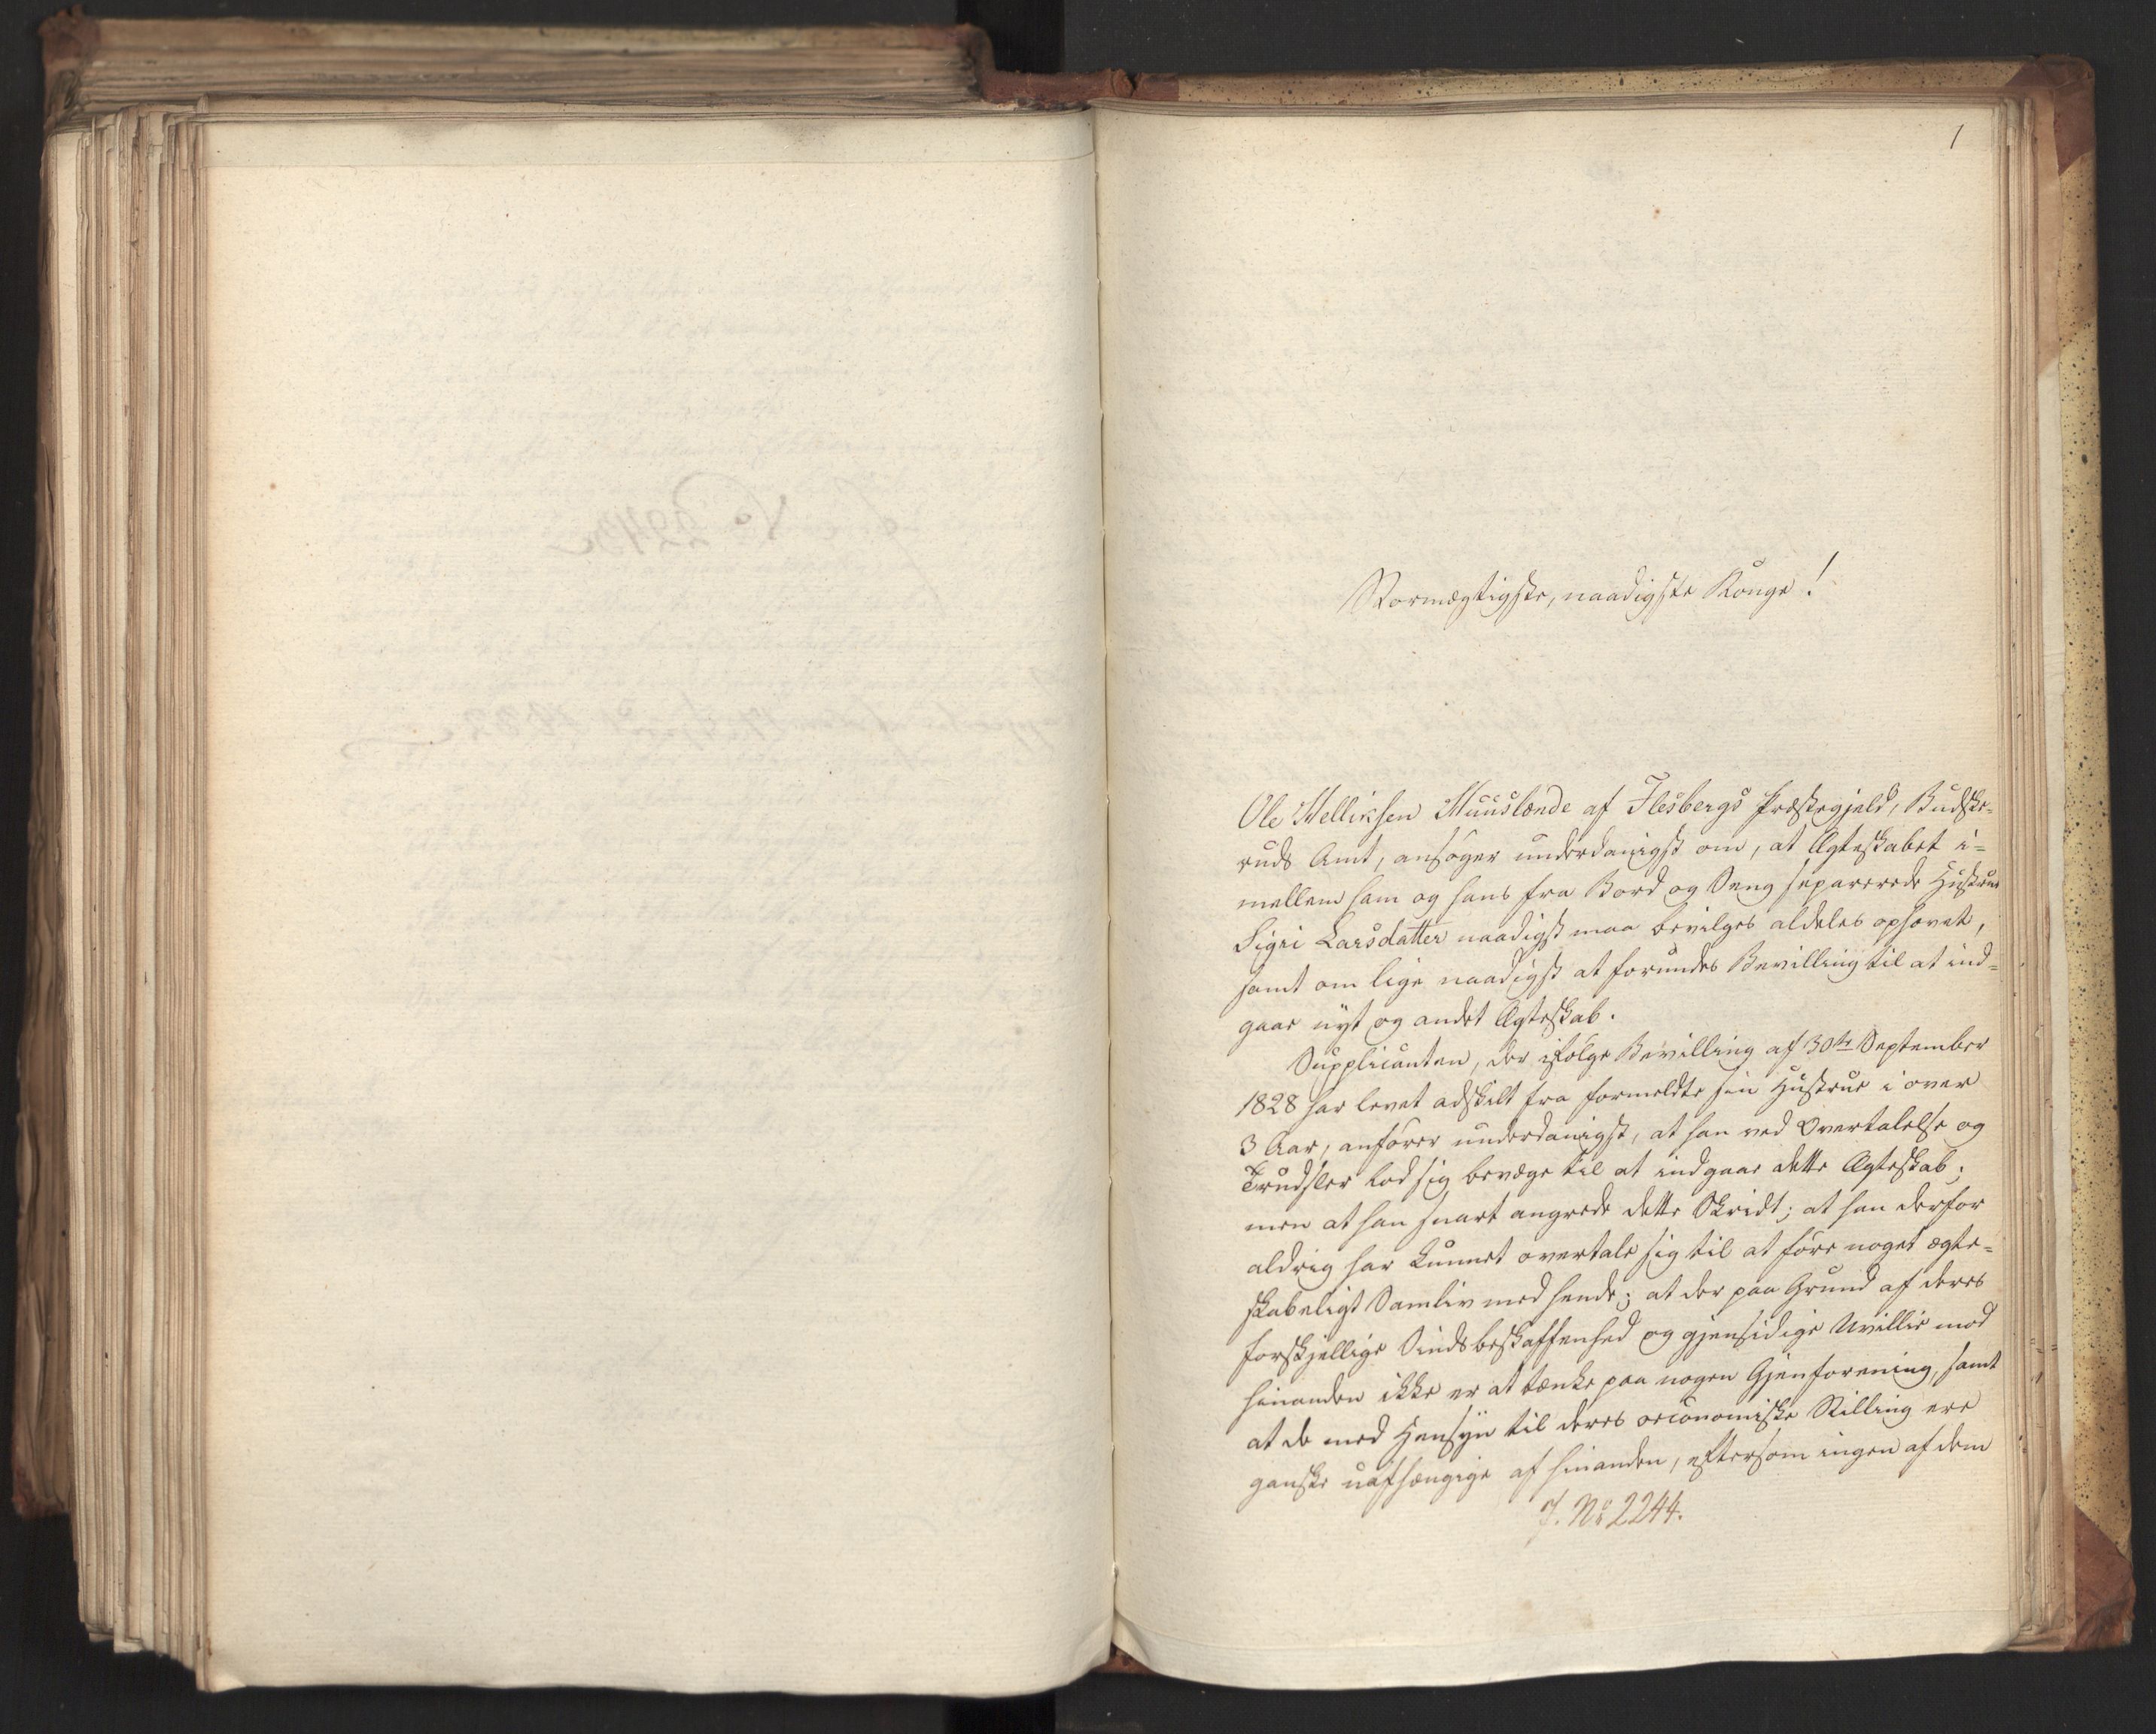 1
Stormægtigste, naadigste Konge!
Ole Helliksen Muuslende af Flesbergs Præstegjeld, Budske-
ruds Amt, ansøger underdanigst om, at Ægteskabet i-
mellem ham og hans fra Bord og Seng separerede Hustrue
Sigri Larsdatter naadigst maa bevilges aldeles ophævet,
samt om lige naadigst at forundes Bevilling til at ind-
gaae nyt og andet Ægteskab.
Supplicanten, der ifølge Bevilling af 30te September
1828 har levet adskilt fra formeldte sin Hustrue i over
3 Aar, anfører underdanigst, at han ved Overtalelse og
Trudsler lod sig bevæge til at indgaae dette Ægteskab;
men at han snart angrede dette Skridt; at han derfor
aldrig har kunnet overtale sig til at føre noget ægte-
skabeligt Samliv med hende; at der paa Grund af deres
forskjellige Sindsbeskaffenhed og gjensidige Uvillie mod
hinanden ikke er at tænke paa nogen Gjenforening, samt
at de med Hensyn til deres oeconomiske Stilling ere
ganske uafhængige af hinanden, eftersom ingen af dem
J. No 2244.